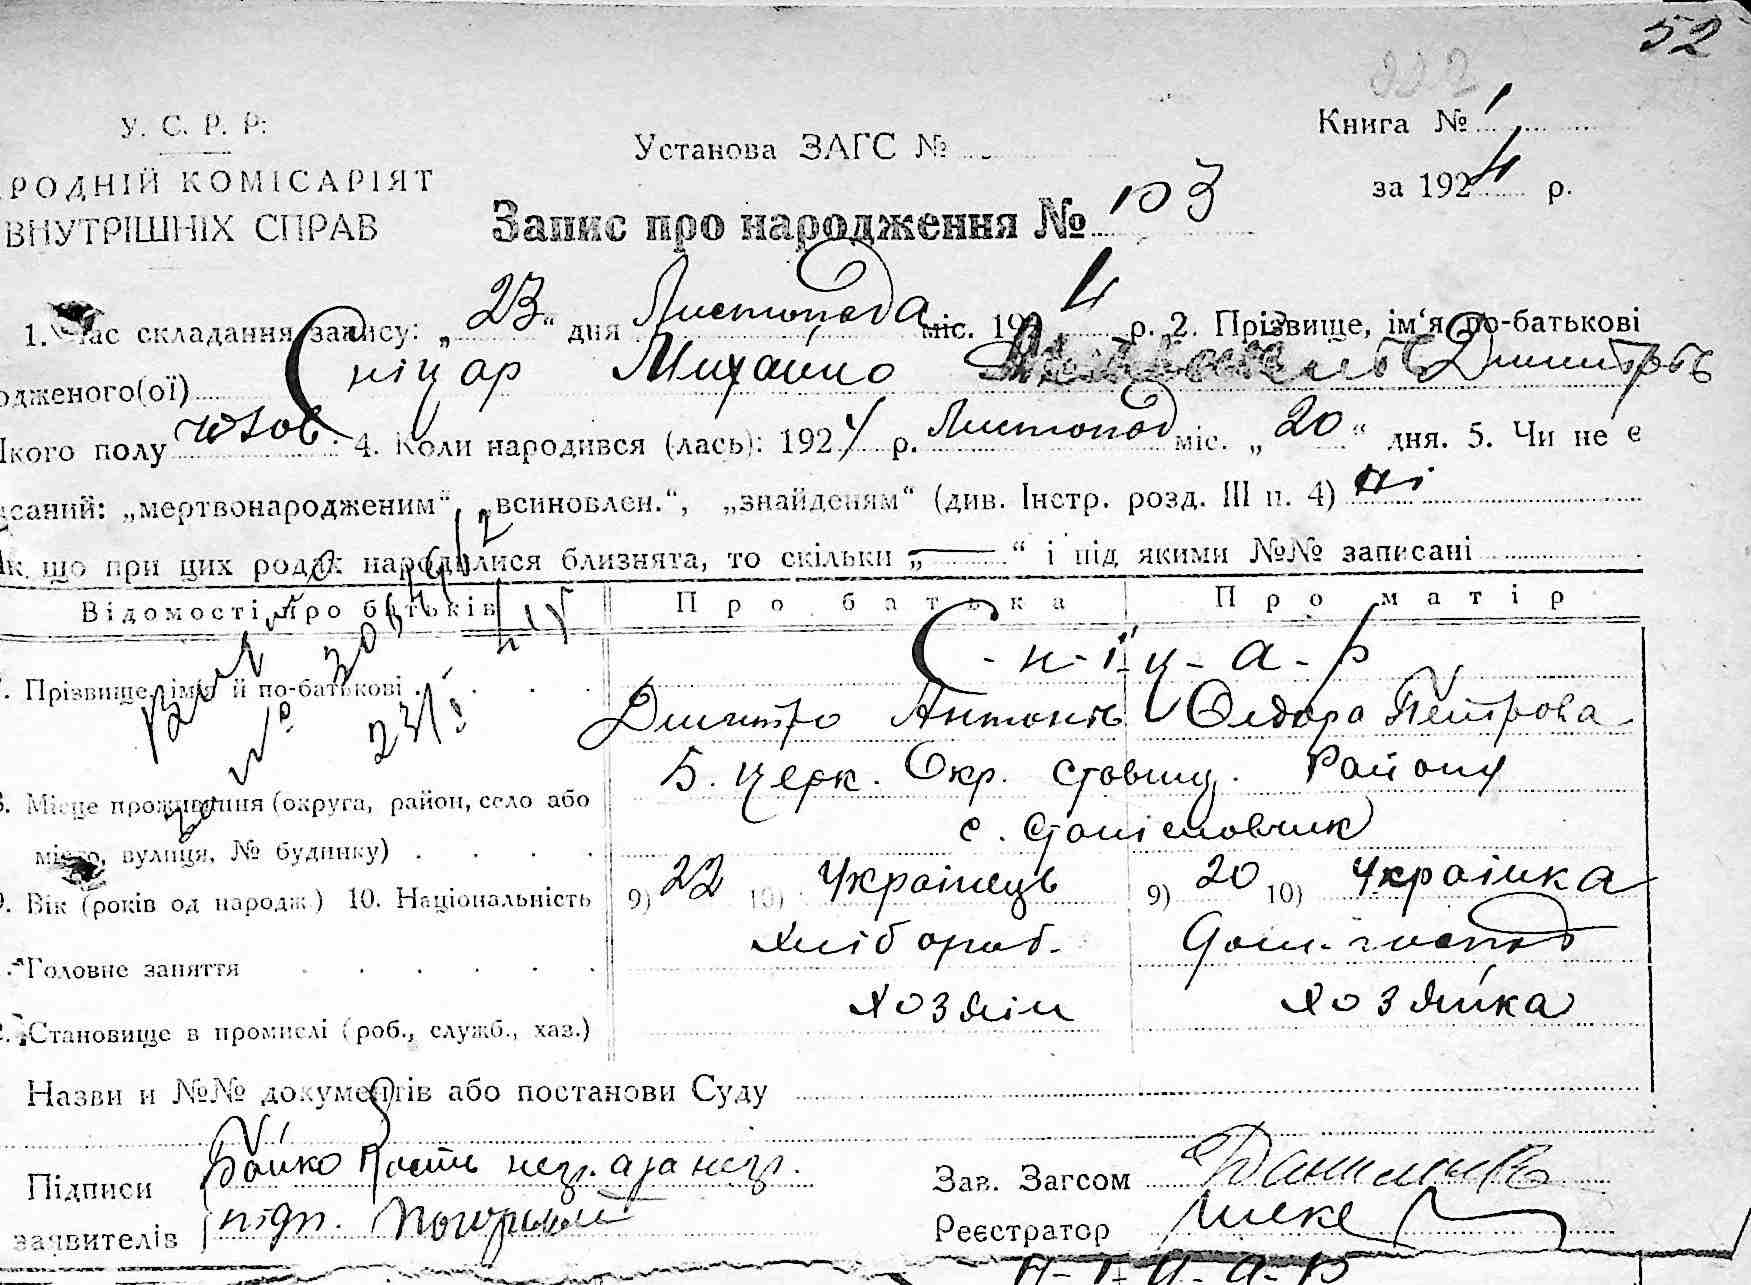 52
222
У. С. Р. Р.
РОДНІЙ КОМІСАРІЯТ
ВНУТРІШНІХ СПРАВ
Установа ЗАГС №
Книга № 1
за 1924 р.
Запис про народження № 103
1. Час складання запису: „23“ дня Листопада міс. 1924 р. 2. Прізвище, ім‘я по-батькові
одженого(ої) Сніцар Михайло Дмитров
Якого полу чолов. 4. Коли народився (лась): 1924 р. Листопад міс. „20“ дня. 5. Чи не є
саний: „мертвонародженим“, „всиновлен.“, „знайденям“ (див. Інстр. розд. III п. 4) ні
Як що при цих родах народилися близнята, то скільки „—“ і під якими №№ записані
Відомості про батьків Про батька Про матір
С-н-і-ц-а-р
7. Прізвище, імя й по-батькові Дмитро Антонів Федора Петрова
8. Місце проживання (округа, район, село або Б. Церк. Окр. Ставищ. Району
місто, вулиця, № будинку) с. Станіславчик
9. Вік (років од народж.) 10. Національність 9) 22 10) Українець 9) 20 10) Українка
Головне заняття хлібороб. Дом. господ
Становище в промислі (роб., служб., хаз.) хозяін хозяйка
Назви и №№ документів або постанови Суду
Підписи Бойко Кость
заявителів підп.
Зав. Загсом
Реєстратор
н-і-ц-а-р